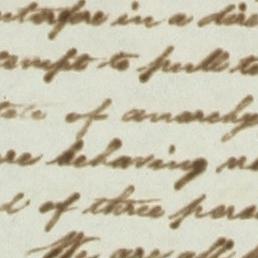 interfere in a dire
tempt to pull to
tate of anarchy
are behaving
d of three pers
We are all